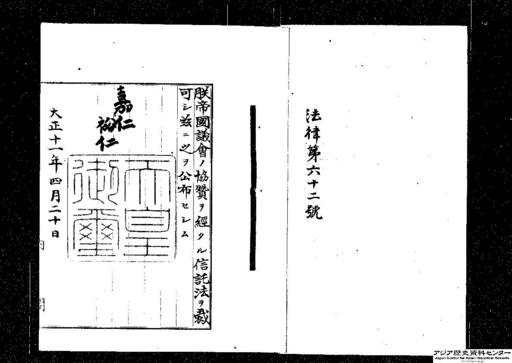 法律第六十二號
朕帝國議會ノ協贊ヲ經タル信託法ヲ裁
可シ茲ニ之ヲ公布セシム
嘉仁
裕仁
天皇
御璽
大正十一年四月二十日
内閣
アジア歴史資料センター
Japan Center for Asian Historical Records